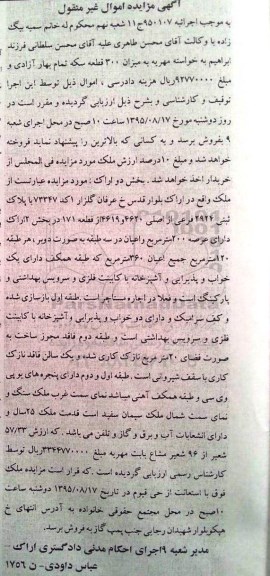 آگهی مزایده اموال غیر منقول
به موجب اجرائیه ۹۵۰۱۰۷ج۱۱ شعبه نهم محکوم له خانم سمیه بیگ
زاده با وکالت آقای محسن طاهری علیه آقای محسن سلطانی فرزند
ابراهیم به خواسته مهریه به میزان ۳۰۰ قطعه سکه تمام بهار آزادی و
مبلغ ۹۲۷۷۰۰۰۰ ریال هزینه دادرسی ، اموال ذیل توسط این اجرا
توقیف و کارشناسی و بشرح ذیل ارزیابی گردیده و مقرر است در
روز دوشنبه مورخ ۱۳۹۵/۰۸/۱۷ ساعت ۱۰ صبح در محل اجرای شعبه
۹ بفروش برسد و به کسانی که بالاترین را پیشنهاد نماید فروخته
خواهد شد و مبلغ ۱۰ درصد ارزش ملک مورد مزایده فی المجلس از
خریدار اخذ خواهد شد . بخش دو اراک : مورد مزایده عبارتست از
ملک واقع در اراک بلوار قدس خ عرفان گلزار ۱کد ۷۳۳۴۷ با پلاک
ثبتی ۲۹۲۴ فرعی از اصلی ۴۶۲۰و۴۶۱۹از قطعه ۱۷۱ در بخش ۲اراک
دارای عرصه ۲۰۰مترمربع واعیان در سه طبقه به صورت دوبر ، هر طبقه
۱۲۰مترمربع جمیع اعیان ۳۶۰مترمربع که طبقه همکف دارای یک
خواب و پذیرایی و آشپزخانه با کابینت فلزی و سرویس بهداشتی و
پارکینگ است و فعلا در اجاره مستاجر است .طبقه اول بازسازی شده
و کف سرامیک و دارای دو خواب و پذیرایی و آشپزخانه با کابینت
فلزی و سرویس بهداشتی است و طبقه دوم فاقد مجوز ساخت به
صورت فضای ۲۰ متر مربع نازک کاری شده و یک سالن فاقد نازک
کاری با سقف شیروانی است .طبقه اول و دوم دارای پنجره های یو پی
وی سی و طبقه همکف آهنی میباشد نمای سمت غرب ملک سنگ و
نمای سمت شمال ملک سیمان سفید است قدمت ملک ۲۵سال و
دارای انشعابات آب و برق و گاز و تلفن می باشد . که ارزش ۵۷/۳۳
شعیر از ۹۶ شعیر مشاع بابت مهریه مبلغ ۳۳۴۶۷۷۰۰۰۰ریال توسط
کارشناس رسمی ارزیابی گردیده است .که قرار است مزایده ملک
فوق با استعانت از حی قیوم در تاریخ ۱۳۹۵/۰۸/۱۷ دوشنبه ساعت
۱۰صبح در محل مجتمع حقوقی خانواده به آدرس انتهای خ
هپکو بلوار شهیدان رجایی جنب پمپ گاز به فروش برسد.
مدیر شعبه ۹اجرای احکام مدنی دادگستری اراک –
عباس داودی- ن ۱۷۵۶